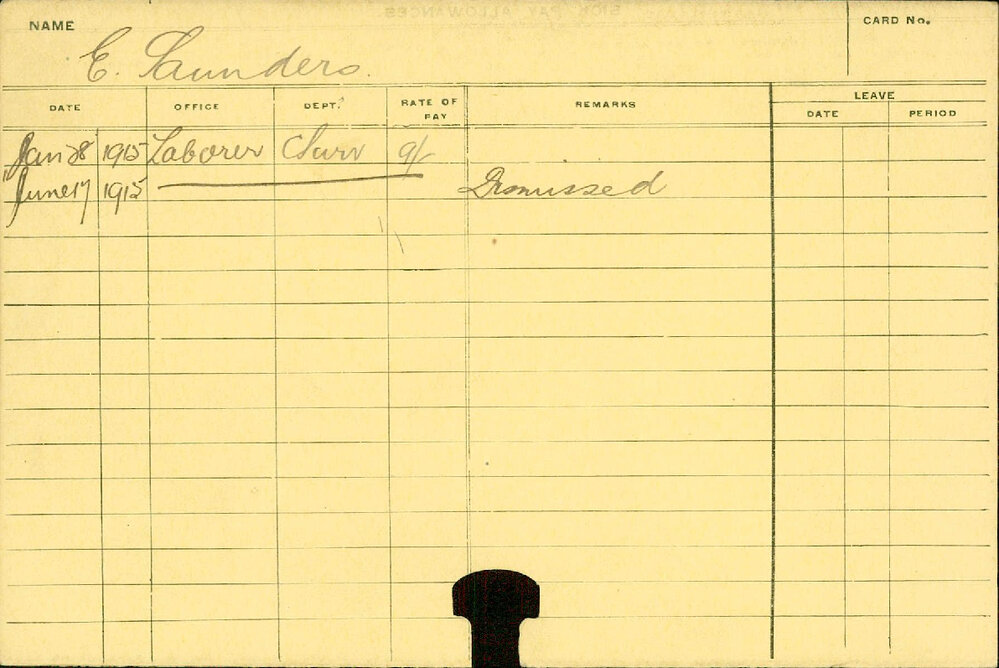 NAME E. Saunders. CARD No.
DATE OFFICE DEPT. RATE OF PAY REMARKS LEAVE
DATE PERIOD
Jan 28 1915 Laborer 9/
June 17 1915 Dismissed